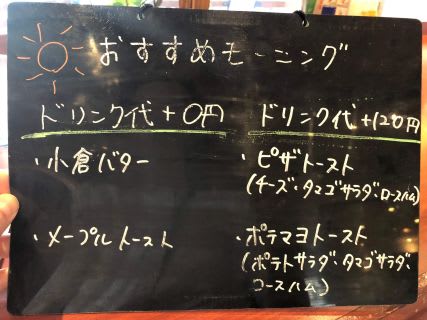 おすすめモーニング
ドリンク代+0円
・小倉バター
・メープルトースト
ドリンク代+120円
・ピザトースト
(チーズ・タマゴサラダ・ロースハム)
・ポテマヨトースト
(ポテトサラダ・タマゴサラダ・
ロースハム)